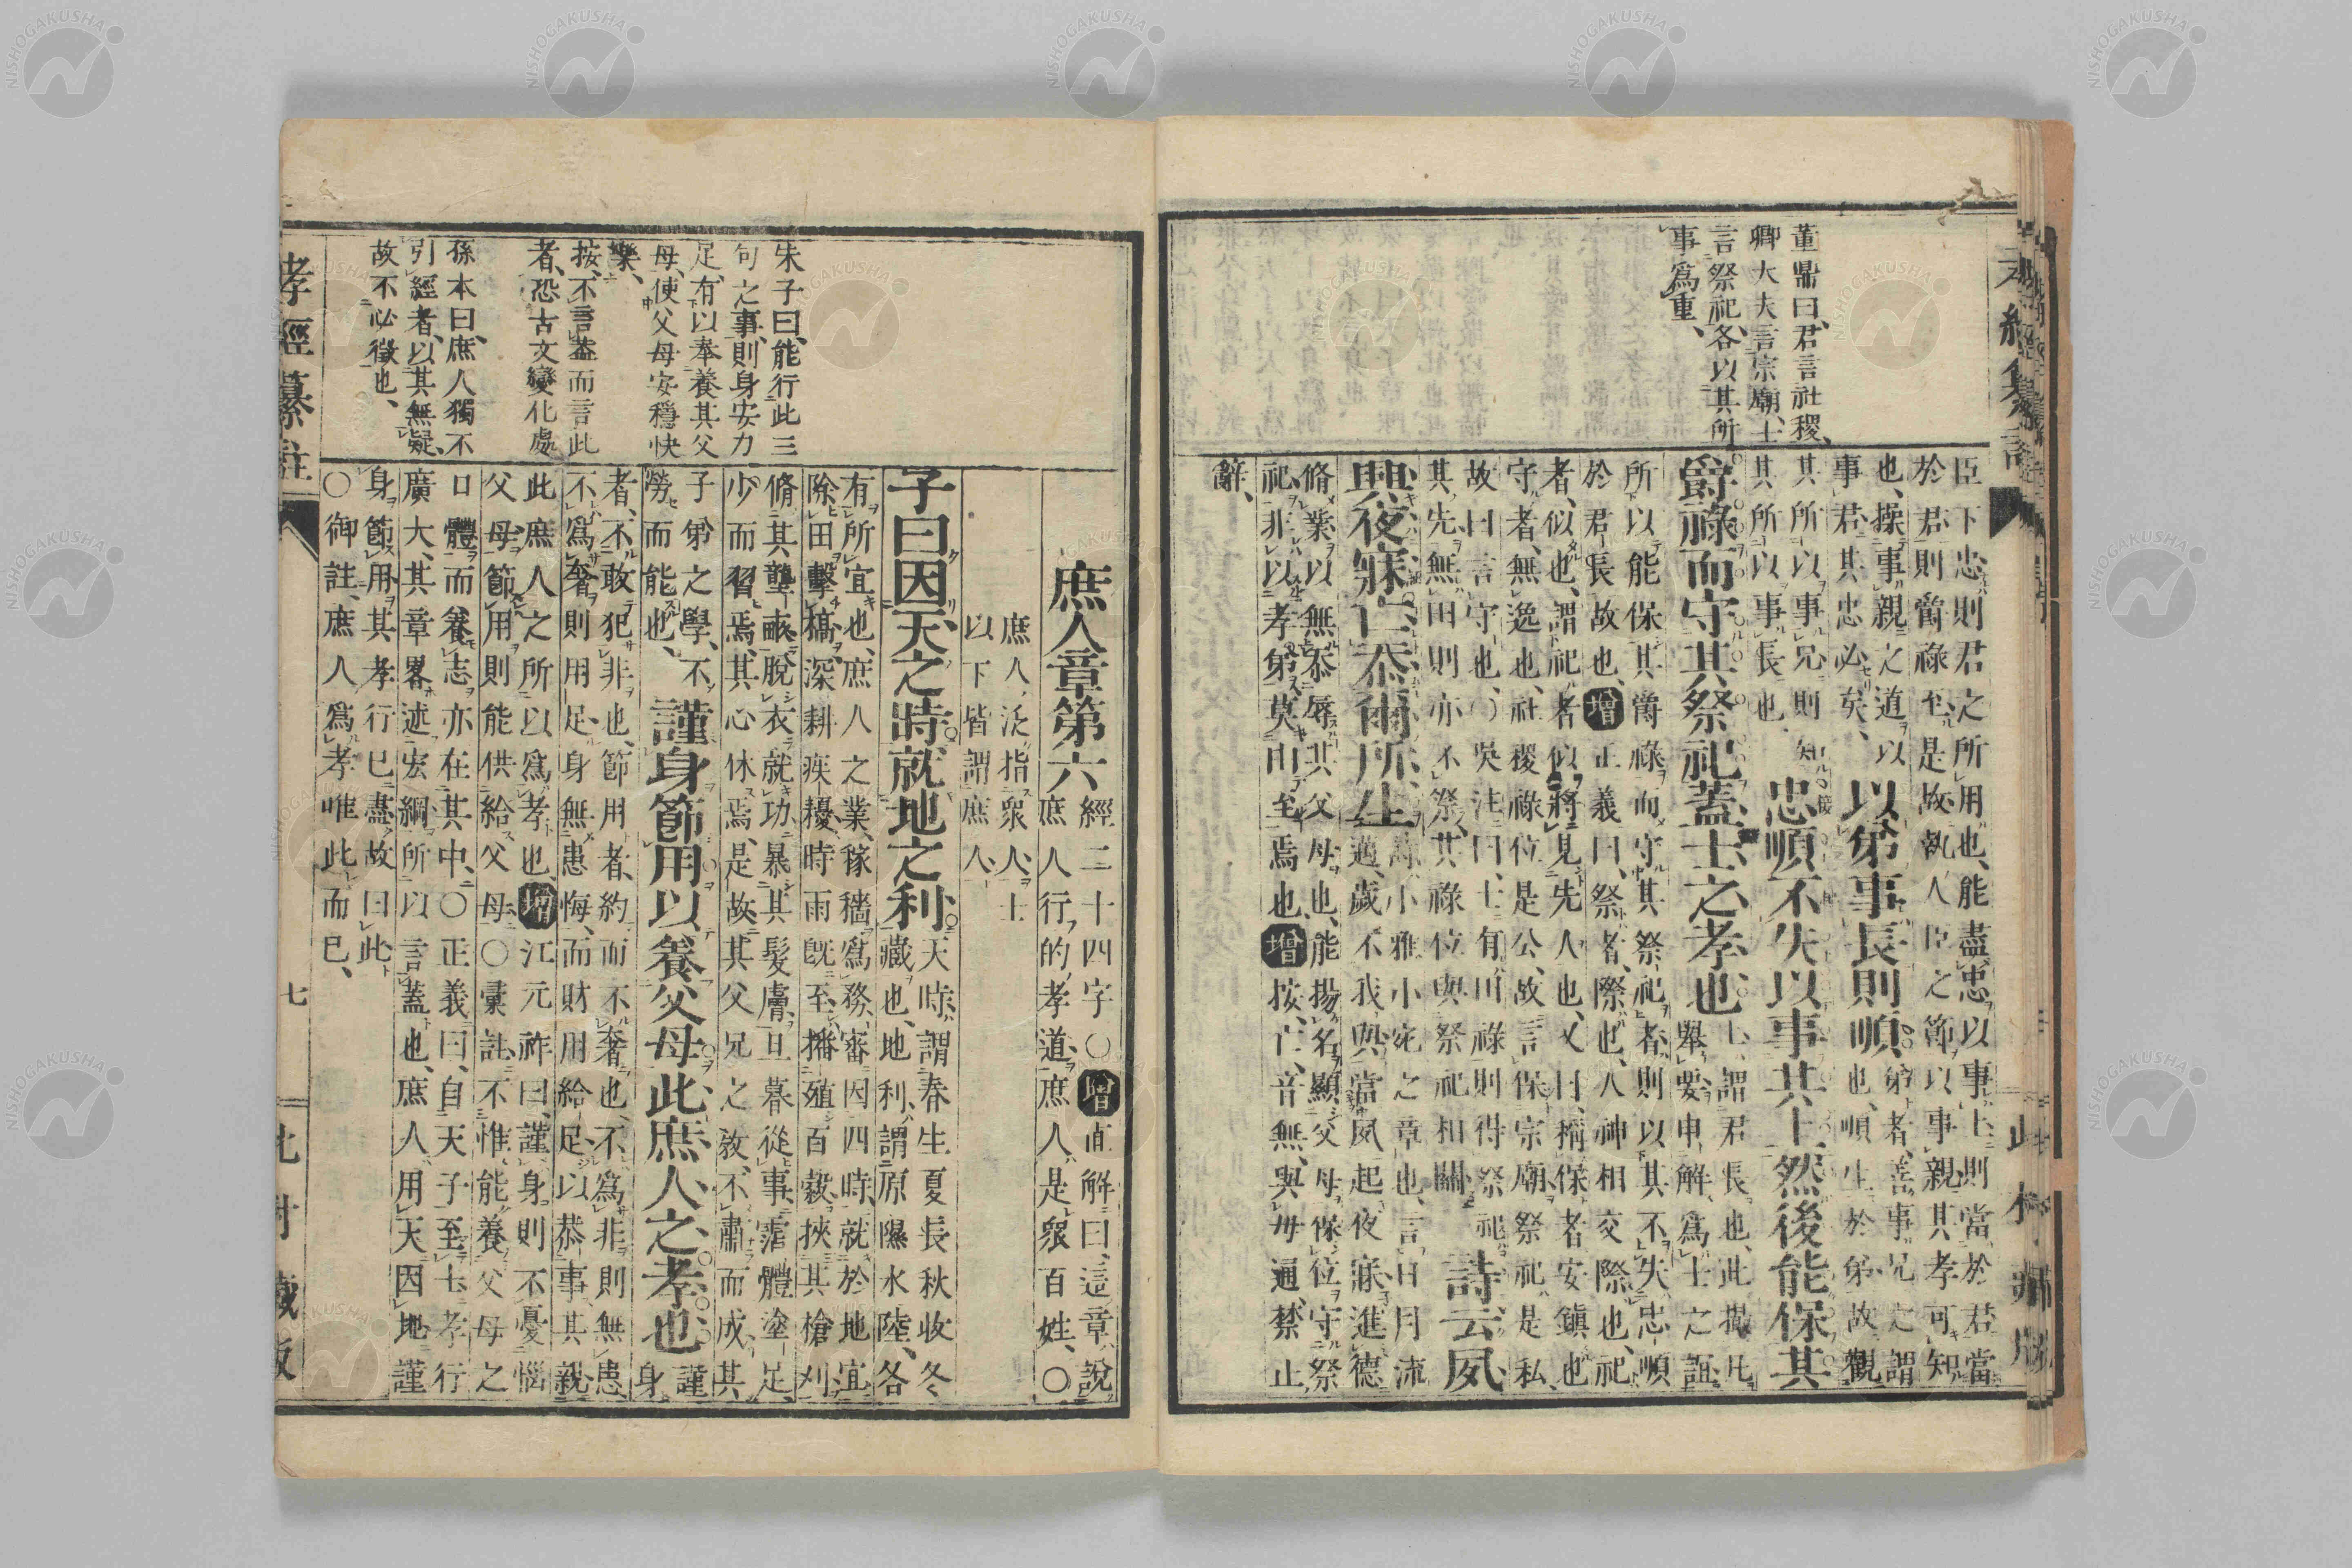 董鼎曰、君言社稷、
卿大夫言宗廟、士
言祭祀、各以其所
事爲重、
臣下忠則君之所用也、能盡忠以事上、則當於君當
於君則當祿至、是故執人臣之節、以事親其孝可知
也、操事親之道、以
事君其忠必矣、
以弟事長則順
弟者、善事兄之謂
也、順生於弟故觀
其所以事兄則知
其所以事長也
忠順不失以事其上然後能保其
爵祿而守其祭祀蓋士之孝也
上、謂君長也、此撮凡
舉要申解爲士之誼
所以能保其爵祿而守其祭祀者、則以其不失忠順
於君長故也、增正義曰、祭者、際也、人神相交際也、祀
者、似也、謂祀者似將見先人也、又曰、稱保者安鎮也
守者、無逸也、社稷祿位是公、故言保宗廟祭祀是私
故曰言守也、〇吳注曰、士有田祿則得祭祀
其先無田則亦不祭、其祿位與祭祀相關
詩云夙
興夜寐亡忝爾所生
詩小雅小宛之章也、言日月流
邁、歲不我與當夙起夜寐進德
脩業以無忝辱其父母也、能揚名顯父母保位守祭
祀非以孝弟莫由至焉也、增按、亡、音無、與毋通禁止
辭、
朱子曰、能行此三
句之事、則身安力
足、有以奉養其父
母、使父母安穩快
樂、
按、不言蓋而言此
者、恐古文變化處
孫本曰、庶人獨不
引經者、以其無疑、
故不必徵也、
庶人章第六
經二十四字〇增直解曰、這章說
庶人行的孝道庶人是眾百姓、〇
庶人、泛指眾人、士
以下皆謂庶人、
子曰因天之時就地之利
天時、謂春生夏長秋收冬
藏也、地利、謂原隰水陸、各
有所宜也、庶人之業、稼穡爲務、審因四時、就於地宜
除田擊槁、深耕疾擾、時雨既至、播殖百穀、挾其槍刈
脩其壟畝、脫衣就功、暴其髮膚、旦暮從事、霑體塗足
少而習焉、其心休焉、是故其父兄之教、不肅而成、其
子弟之學、不
勞而能也、
謹身節用以養父母此庶人之孝也
謹
身
者、不敢犯非也、節用者、約而不奢也、不爲非則無患
不爲奢則用足身無患悔、而財用給足、以恭事其親
此庶人之所以爲孝也、增江元祚曰、謹身則不憂惱
父母、節用則能供給父母、〇彙註、不惟能養父母之
口體而養志亦在其中、〇正義曰、自天子至士孝行
廣大、其章畧述宏綱所以言蓋也、庶人用天因地謹
身節用其孝行已盡故曰此
〇御註、庶人爲孝唯此而已、
孝經纂註
七